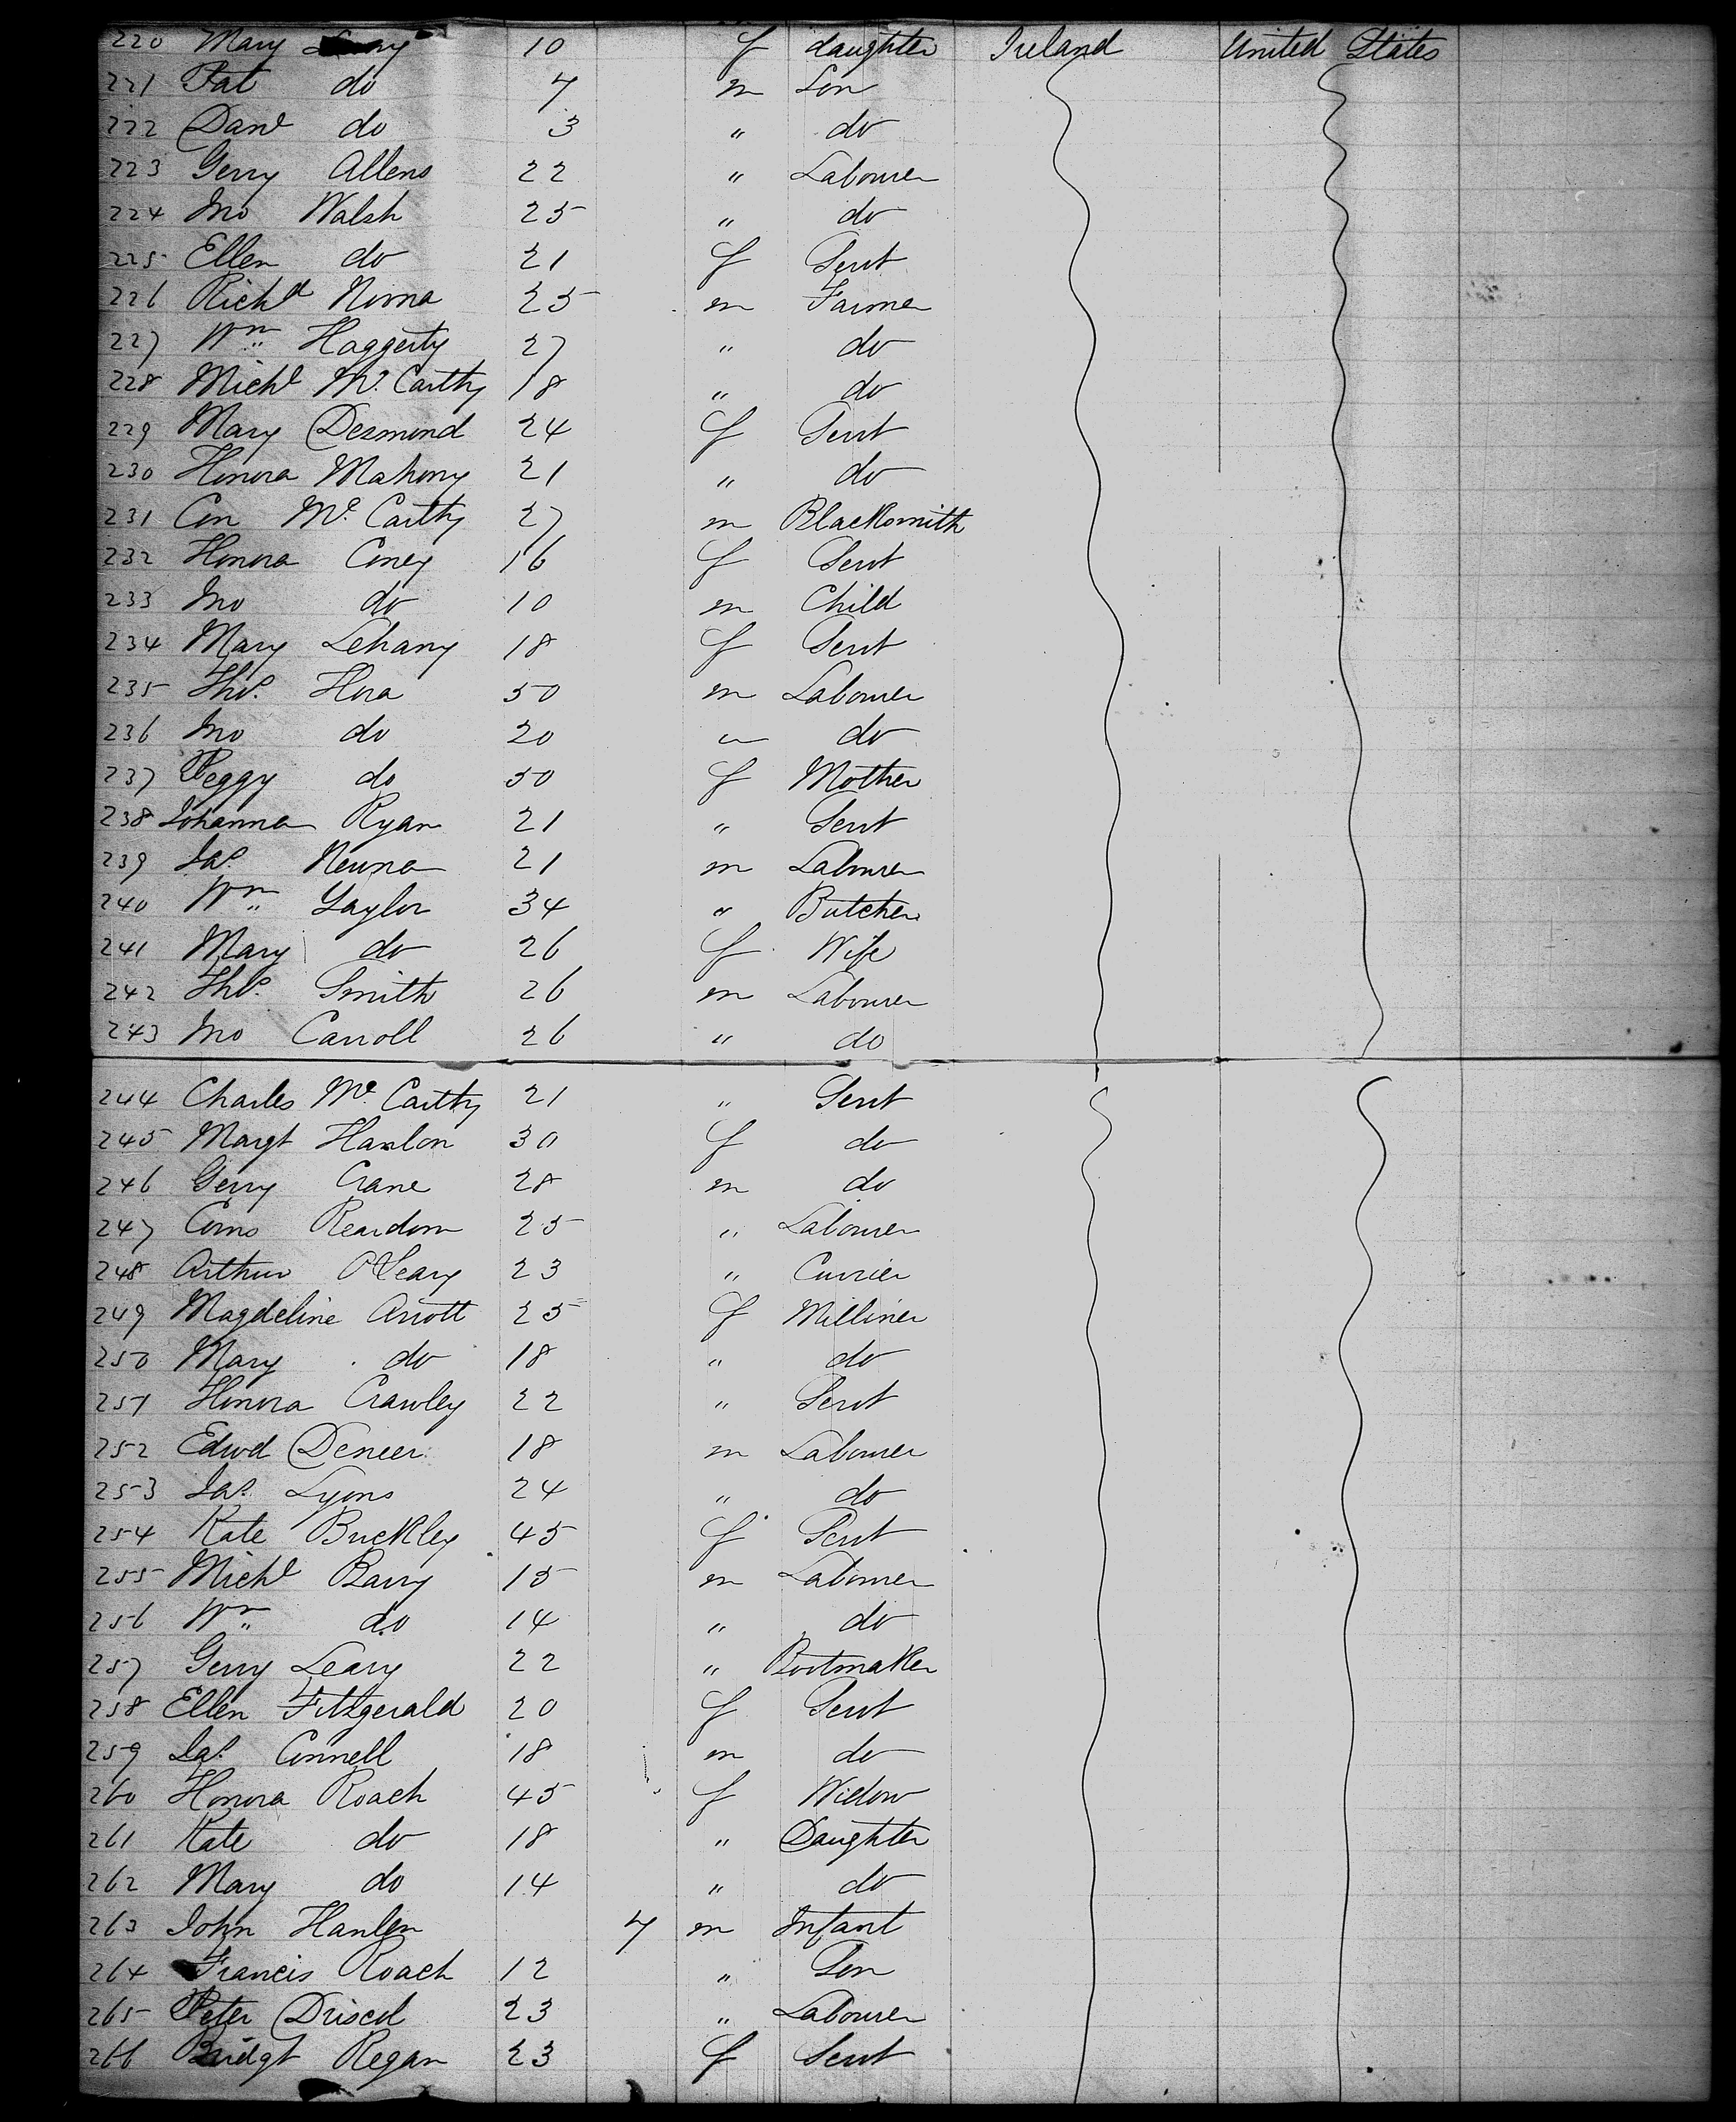 220 Mary 10 f daughter Ireland United States
221 Pat do 7 m Son
222 Danl do 3 " do
223 Gerry Allens 22 " Labourer
224 Jno Walsh 25 " do
225 Ellen do 21 f Servt
226 Richd 25 m Farmer
227 Wm Haggerty 27 " do
228 Michl McCarthy 18 " do
229 Mary Desmond 24 f Servt
230 Honora Mahony 21 " do
231 Con McCarthy 27 m Blacksmith
232 Honora Coney 16 f Servt
233 Jno do 10 m Child
234 Mary Lehany 18 f Servt
235 Thos. Hora 50 m Labourer
236 Jno do 20 " do
237 Peggy do 50 f Mother
238 Johanna Ryan 21 " Servt
239 Jas. 21 m Labourer
240 Wm Taylor 34 " Butcher
241 Mary do 26 f Wife
242 Thos. Smith 26 m Labourer
243 Jno Carroll 26 " do
244 Charles McCarthy 21 " Servt
245 Margt Hanlon 30 f do
246 Gerry Crane 28 m do
247 Corns Reardon 25 " Labourer
248 Arthur O'Leary 23 " Currier
249 Magdeline Arrott 25 f Milliner
250 Mary do 18 " do
251 Honora Crawley 22 " Servt
252 Edwd Deneer 18 m Labourer
253 Jas. Lyons 24 " do
254 Kate Buckley 45 f Servt
255 Michl Barry 15 m Labourer
256 Wm do 14 " do
257 Gerry Leary 22 " Bootmaker
258 Ellen Fitzgerald 20 f Servt
259 Jas. Connell 18 m do
260 Honora Roach 45 f Widow
261 Kate do 18 " Daughter
262 Mary do 14 " do
263 John Hanlen 7 m Infant
264 Francis Roach 12 " Son
265 Peter Driscol 23 " Labourer
266 Bridgt Regan 23 f Servt